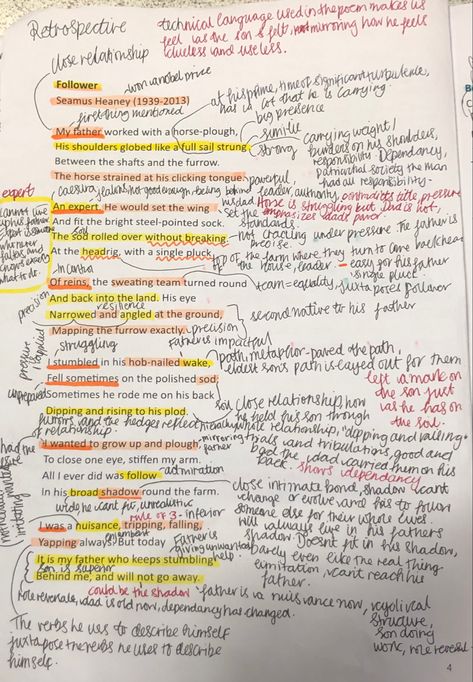 Retrospective
technical language used in the poem makes us
feel as the son felt, mirroring how he feels
clueless and useless.
close relationship
Follower
won a nobel prize
Seamus Heaney (1939-2013)
first thing mentioned
at his prime, time of significant turbulence,
has a lot that he is carrying.
big presence
My father worked with a horse-plough,
simile
His shoulders globed like a full sail strung
strong
Carrying weight/
burdens on his shoulders,
responsibility. Dependency,
Patriarchal society the man
had all responsibility.
Between the shafts and the furrow.
The horse strained at his clicking tongue.
powerful,
leader, authority
expert
caesura
An expert. He would set the wing
set the
standards.
Horse is struggling but dad is not,
emphasizes dads power
And fit the bright steel-pointed sock.
The sod rolled over without breaking
not cracking under pressure. The father is
precise.
At the headrig, with a single pluck
top of the farm where they turn to come back
easy for his father
single pluck
in control
Of reins, the sweating team turned round
team = equality
juxtaposes follower
precision
And back into the land. His eye
resilience
Narrowed and angled at the ground,
second nature to his father
Mapping the furrow exactly.
precision
struggling
Father is impactful
pressure
I stumbled in his hob-nailed wake,
path, metaphor - paved the path,
eldest son's path is layed out for them
Fell sometimes on the polished sod;
left a mark on
the son just
as he has on
the soil.
Sometimes he rode me on his back
soil
close relationship, how
he held his son through
Dipping and rising to his plod.
trials and tribulations, good and
bad the dad carried them on his
back. shows dependency
furrows and the hedges reflect
relationship.
mirroring
father
I wanted to grow up and plough,
To close one eye, stiffen my arm.
All I ever did was follow
admiration
close intimate bond, shadow cant
change or evolve and has to follow
someone else for their whole lives.
In his broad shadow round the farm.
wide, he cant fit, unrealistic
rule of 3 - inferior
will always live in his fathers
shadow. Doesnt fit in his shadow,
barely even like the real thing
imitation, cant reach his
father.
I was a nuisance, tripping, falling,
enjambment
Yapping always. But today
Father is
giving unwanted
help.
It is my father who keeps stumbling
son is superior
Behind me, and will not go away.
could be the shadow
father is a nuisance now, cyclical
structure,
son doing
work, role reversal
role reversal, dad is old now, dependency has changed.
The verbs he uses to describe himself
juxtapose the verbs he uses to describe
himself.
4